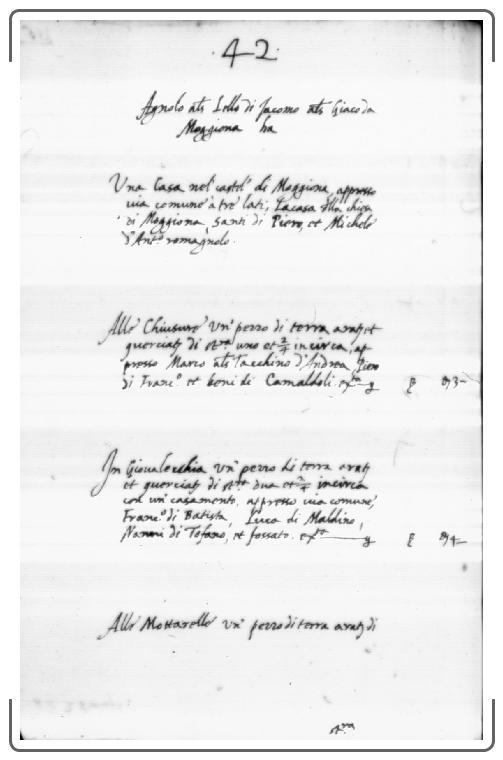 42
Agnolo als Lello di Jacomo als Giaco da
Moggiona ha
Una Casa nel castel di Moggiona, appresso
via comune à tre lati, la casa della chiesa
di Moggiona, Santi di Piero, et Michele
d'Ant.o romagnolo.
Alle Chiusure un pezzo di terra arat. et
querciat. di st.ra uno et 2/4 in circa, ap
presso Marco als Tacchino d'Andrea, Piero
di Franc.o et beni di Camaldoli
In Gioualecchia un pezzo di terra arat.
et querciat. di st.re dua et 2/4 in circa
con un casamento, appresso via comune,
Franc.o di Batista, Luca di Maldino,
Nanni di Tofano, et fossato.
Alle Mottarelle un pezzo di terra arat. di
st.ra